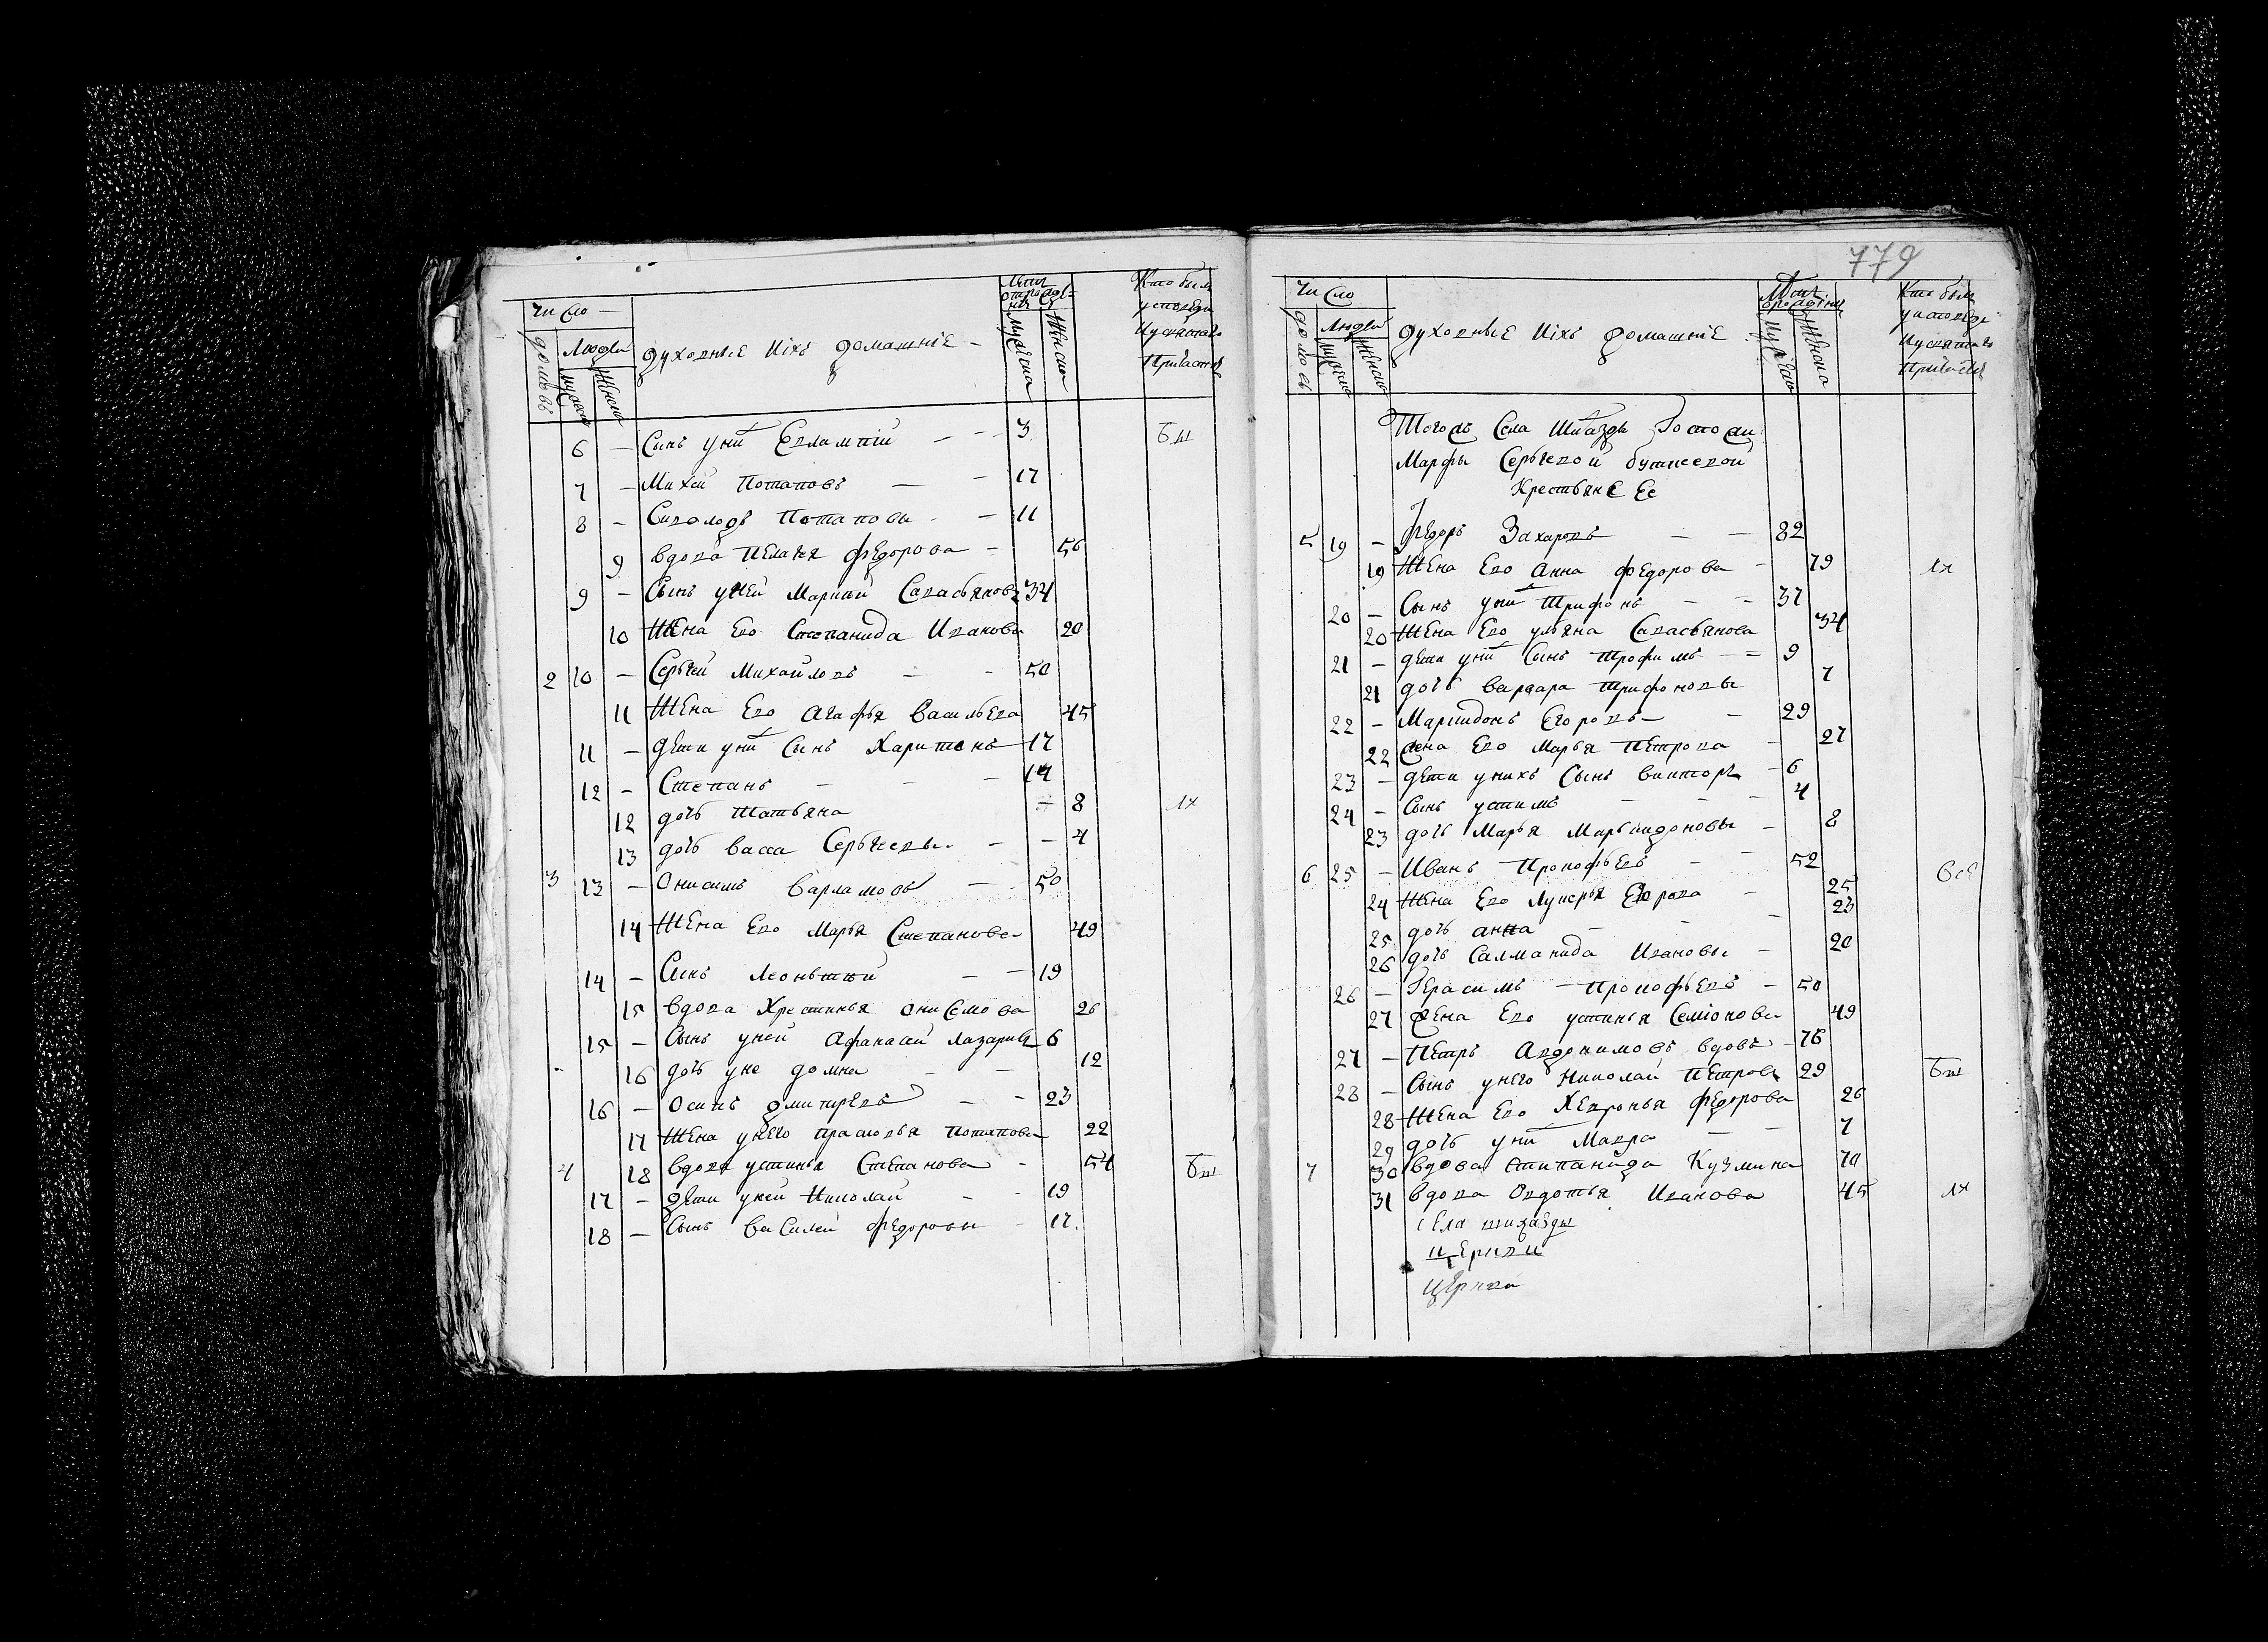 Число
домовъ
Люди
мужеска
женска
духовные иіхъ домашніе
Кто были
у исповѣди
и у святаго
причастія
6 — Сынъ у ни Евлампій — 3 Бы
7 — Михей Потаповъ — 17
8 — Сиволодъ Потаповы — 11
9 вдова Пелагея Федорова — 56
9 — Сынъ у ней Савастьяновъ 34
10 Жена Ево Степанида Иванова 20
2 10 — Сергей Михайловъ — 50
11 Жена Ево Агафья Васильева 45
11 — дети у ни Сынъ Харитонъ 17
12 — Степанъ — 14
12 дочь Татьяна — 8
13 дочь Васса Сергеевы — 4
3 13 — Онисимъ Варламовъ — 50
14 Жена Ево Марья Степанова 49
14 — Сынъ Леонътий — 19
15 вдова Хрестинья Онисемова 26
15 — Сынъ у ней Афанасий 6
16 дочь у не домна — 12
16 — Осипъ дмитревъ — 23
17 Жена у него прасковья Потапова 22
4 18 вдова устинья Степанова — 54 Бы
17 — дети у ней Николай — 19
18 — Сынъ Василей Федоровы — 17
779
Число
домовъ
Люди
мужеска
женска
духовные иіхъ домашніе
Кто были
у исповеди
и у святаго
причастія
Тогожъ Села Госпожи
Марфы Сергевой
Крестьяне Ее
5 19 — Федоръ Захаровъ — 82
19 Жена Ево Анна Федорова — 79
20 — Сынъ у ни Трифонъ — 37
20 Жена Ево ульяна Савасьянова 34
21 — дети у ни Сынъ Трофимъ — 9
21 дочь варвара Трифоновы 7
22 — Егоровъ — 29
22 Жена Ево Марья Петрова — 27
23 — дети у нихъ Сынъ викторъ — 6
24 — Сынъ устимъ — 4
23 дочь Марья — 8
6 25 — Иванъ Прокофьевъ — 52 Все
24 Жена Ево Лукерья — 25
25 дочь анна — 23
26 дочь Салманида Ивановы — 20
26 — Герасимъ — Прокофьевъ — 50
27 Жена Ево устинья Семіонова 49
27 — Петръ вдовъ — 76
28 — Сынъ у него Николай Петровъ 29 Бы
28 Жена Ево Хевронья Федорова 26
29 дочь у ни Мавра — 7
7 30 вдова Стипанида Кузмина 70
31 вдова Овдотья Иванова 45
села
церкви
церква